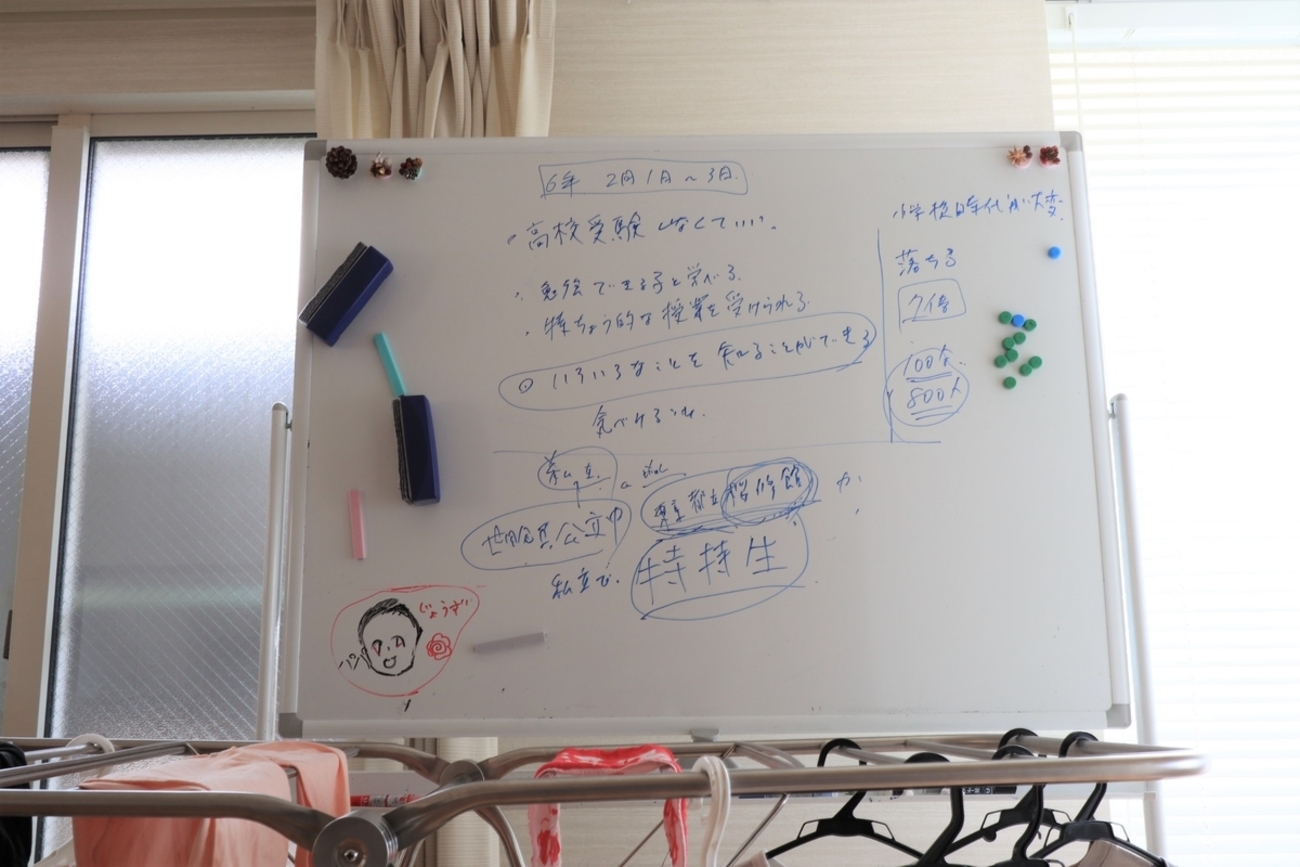 6年 2月1日～3日
・高校受験しなくていい。
・勉強できる子と学べる
・特ちょう的な授業を受けられる
⊙ いろいろなことを知ることができる
小学校時代が大変
落ちる
7倍
100人
800人
私立
東京都立桜修館 か
世田谷公立中
私立で 特待生
じょうぎ
パパ